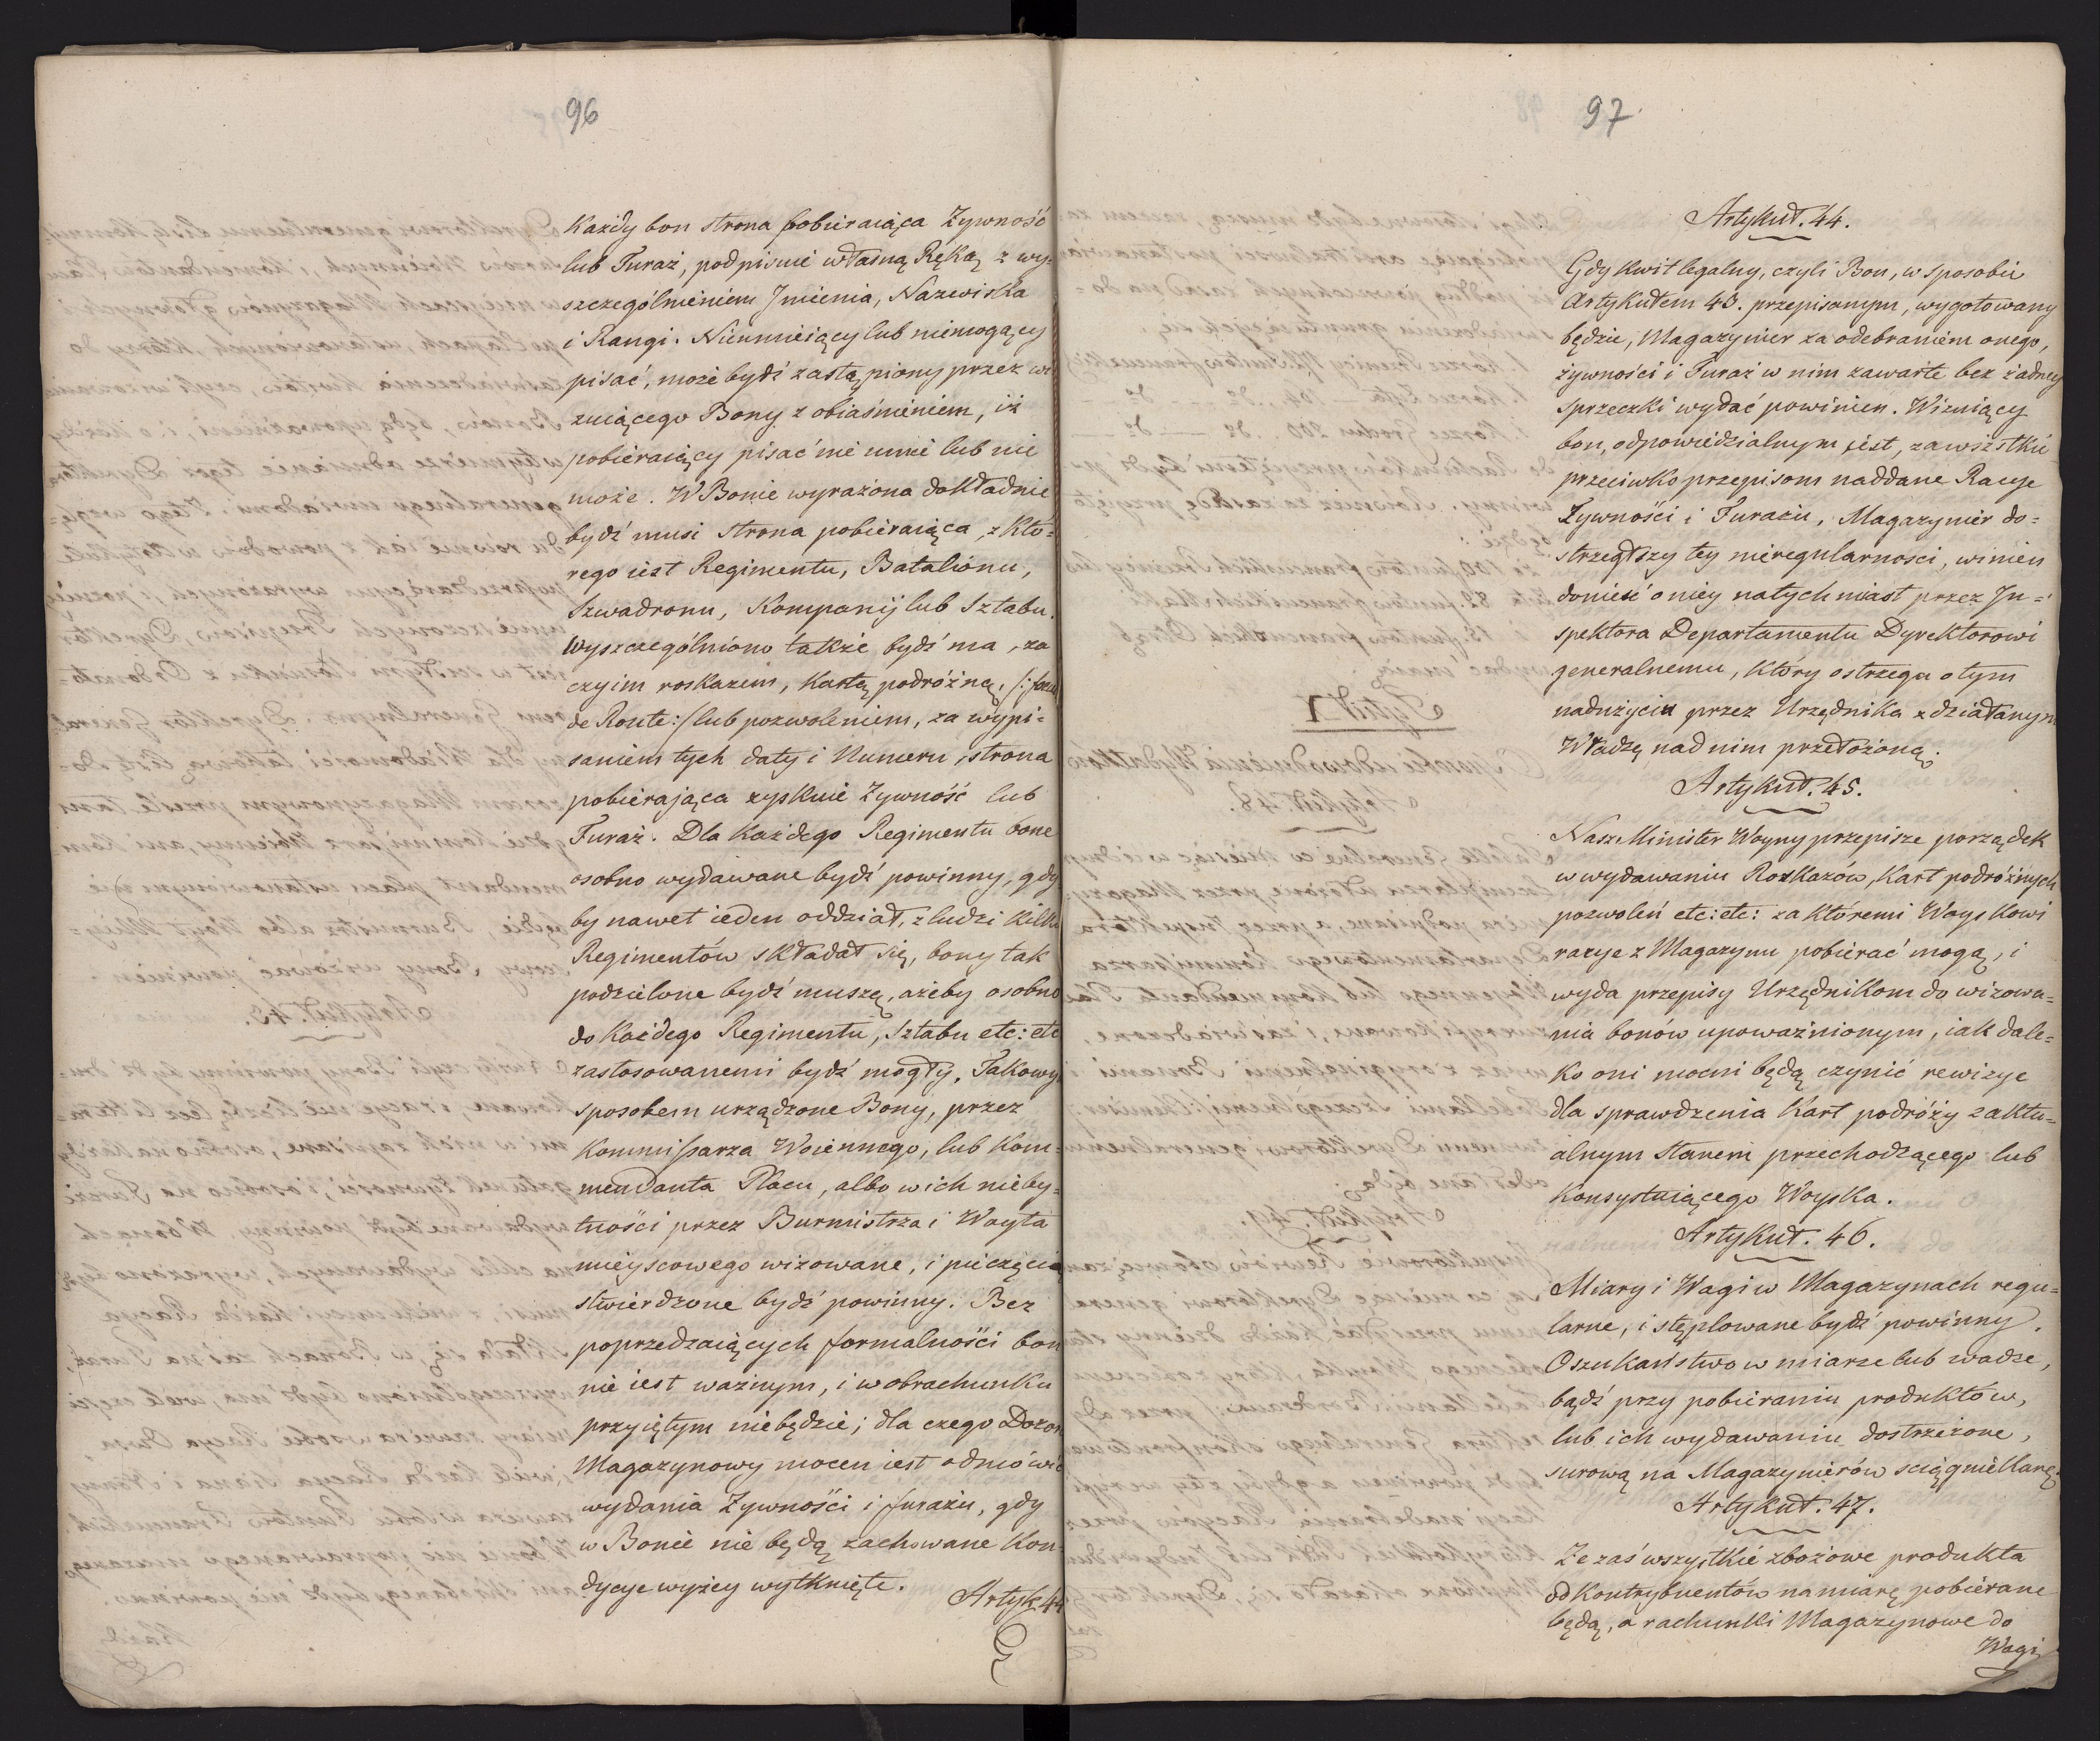 96
Każdy bon strona pobieraiąca Żywność
lub Furaż, podpisuie własną Ręką z wy=
szczególnieniem Jmienia, Nazwiska
i Rangi. Nieumieiący lub niemogący
pisać, może bydź zastąpiony przez wi
zuiącego Bony z obiaśnieniem, iż
pobieraiący pisać nie umie lub nie
może. W Bonie wyrażona dokładnie
bydź musi strona pobieraiąca, z któ=
rego iest Regimentu, Batalionu,
Szwadronu, Kompanij lub Sztabu.
Wyszczególniono także bydź ma, za
czyim roskazem, kartą podróżną, /:
de Route:/ lub pozwoleniem, za wypi=
saniem tych daty i Numeru, strona
pobierająca zyskuie Żywność lub
Furaż. Dla każdego Regimentu bone
osobno wydawane bydź powinny, gdy
by nawet ieden oddział, z ludzi kilku
Regimentów składał się, bony tak
podzielone bydź muszą, ażeby osobno
do każdego Regimentu, Sztabu etc: etc
zastosowanemi bydź mogły. Takowym
sposobem urządzone Bony, przez
Kommissarza Woiennego, lub Kom=
mendanta Placu, albo w ich nieby=
tności przez Burmistrza i Woyta
mieyscowego wizowane, i pieczęcią
stwierdzone bydź powinny. Bez
poprzedzaiących formalności bon
nie iest ważnym, i w obrachunku
przyiętym niebędzie; dla czego Dozor
Magazynowy mocen iest odmówić
wydania Żywności i furażu, gdy
w Bonie nie będą zachowane kon=
dycye wyżey wytknięte.
Artyk 44
97
Artykuł. 44.
Gdy kwit legalny, czyli Bon, w sposobie
Artykułem 43. przepisanym, wygotowany
będzie, Magazynier za odebraniem onego,
żywności i Furaż w nim zawarte bez żadney
sprzeczki wydać powinien. Wizuiący
bon, odpowiedzialnym jest, za wszystkie
przeciwko przepisom naddane Racye
Żywności i Furażu, Magazynier do=
strzegłszy tey nieregularności, winien
donieść o niey natychmiast przez In=
spektora Departamentu Dyrektorowi
generalnemu, który ostrzega o tym
nadużyciu przez Urzędnika zdziałanym
Władzę nad nim przełożoną.
Artykuł. 45.
Nasz Minister Woyny przepisze porządek
w wydawaniu Rozkazów, Kart podróżnych
pozwoleń etc: etc: za któremi Woyskowi
racye z Magazynu pobierać mogą, i
wyda przepisy Urzędnikom do wizowa=
nia bonów upoważnionym, iak dale=
ko oni mocni będą czynić rewizye
dla sprawdzenia Kart podróży z aktu=
alnym Stanem przechodzącego lub
konsystuiącego Woyska.
Artykuł. 46.
Miary i Wagi w Magazynach regu=
larne, i stęplowane bydź powinny.
Oszukaństwo w miarze lub wadze,
bądź przy pobieraniu produktów,
lub ich wydawaniu dostrzeżone,
surową na Magazynierów sciągnie Karę.
Artykuł. 47.
Że zaś wszystkie zbożowe produkta
od Kontrybuentów na miarę pobierane
będą, a rachunki Magazynowe do
Wagi